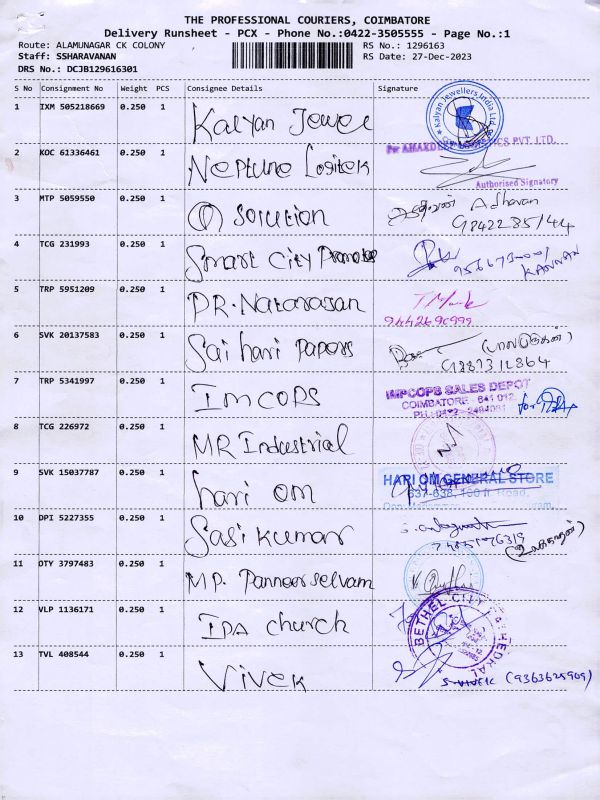 THE PROFESSIONAL COURIERS, COIMBATORE
Delivery Runsheet - PCX - Phone No.:0422-3505555 - Page No.:1
Route: ALAMUNAGAR CK COLONY
RS No.: 1296163
Staff: SSHARAVANAN
RS Date: 27-Dec-2023
DRS No.: DCJB129616301
S No Consignment No Weight PCS Consignee Details Signature
1 IXM 505218669 0.250 1 Kalyan Jewel
Kalyan Jewellers India Ltd.
2 KOC 61336461 0.250 1 Neptune Logitek
PVT. LTD.
Authorised Signatory
3 MTP 5059550 0.250 1 solution Adhavan
9842285144
4 TCG 231993 0.250 1 Smart City Promoters
KANNAN
5 TRP 5951209 0.250 1 DR. Natarasan
9442690999
6 SVK 20137583 0.250 1 Sai hari Papers
9887312864
7 TRP 5341997 0.250 1 IMCOPS
IMPCOPS SALES DEPOT
COIMBATORE - 641 012.
8 TCG 226972 0.250 1 MR Industrial
9 SVK 15037787 0.250 1 hari om
HARI OM GENERAL STORE
637-638, 100 ft Road,
10 DPI 5227355 0.250 1 Sasi kumar
11 OTY 3797483 0.250 1 MP. Panneerselvam
12 VLP 1136171 0.250 1 IPA church
BETHEL CITY
13 TVL 408544 0.250 1 Vivek
S. VIVEK (9363625909)